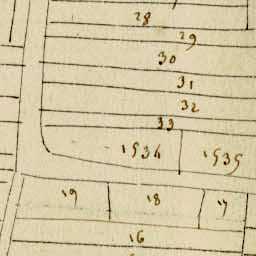 28
29
30
31
32
33
1534 1535
19 18 17
16